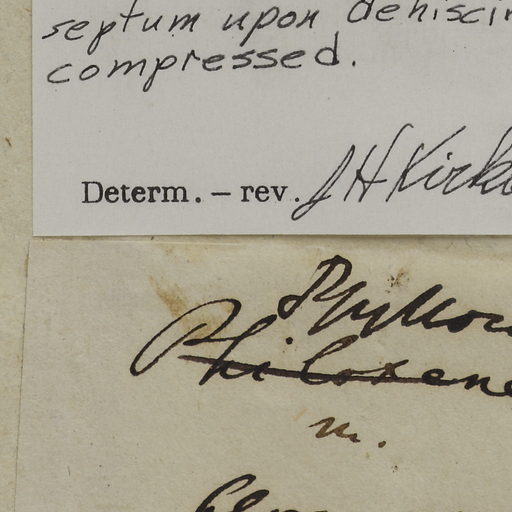 septum upon dehiscin
compressed.
Determ. – rev. JH Kirkb
Philoxene
m.